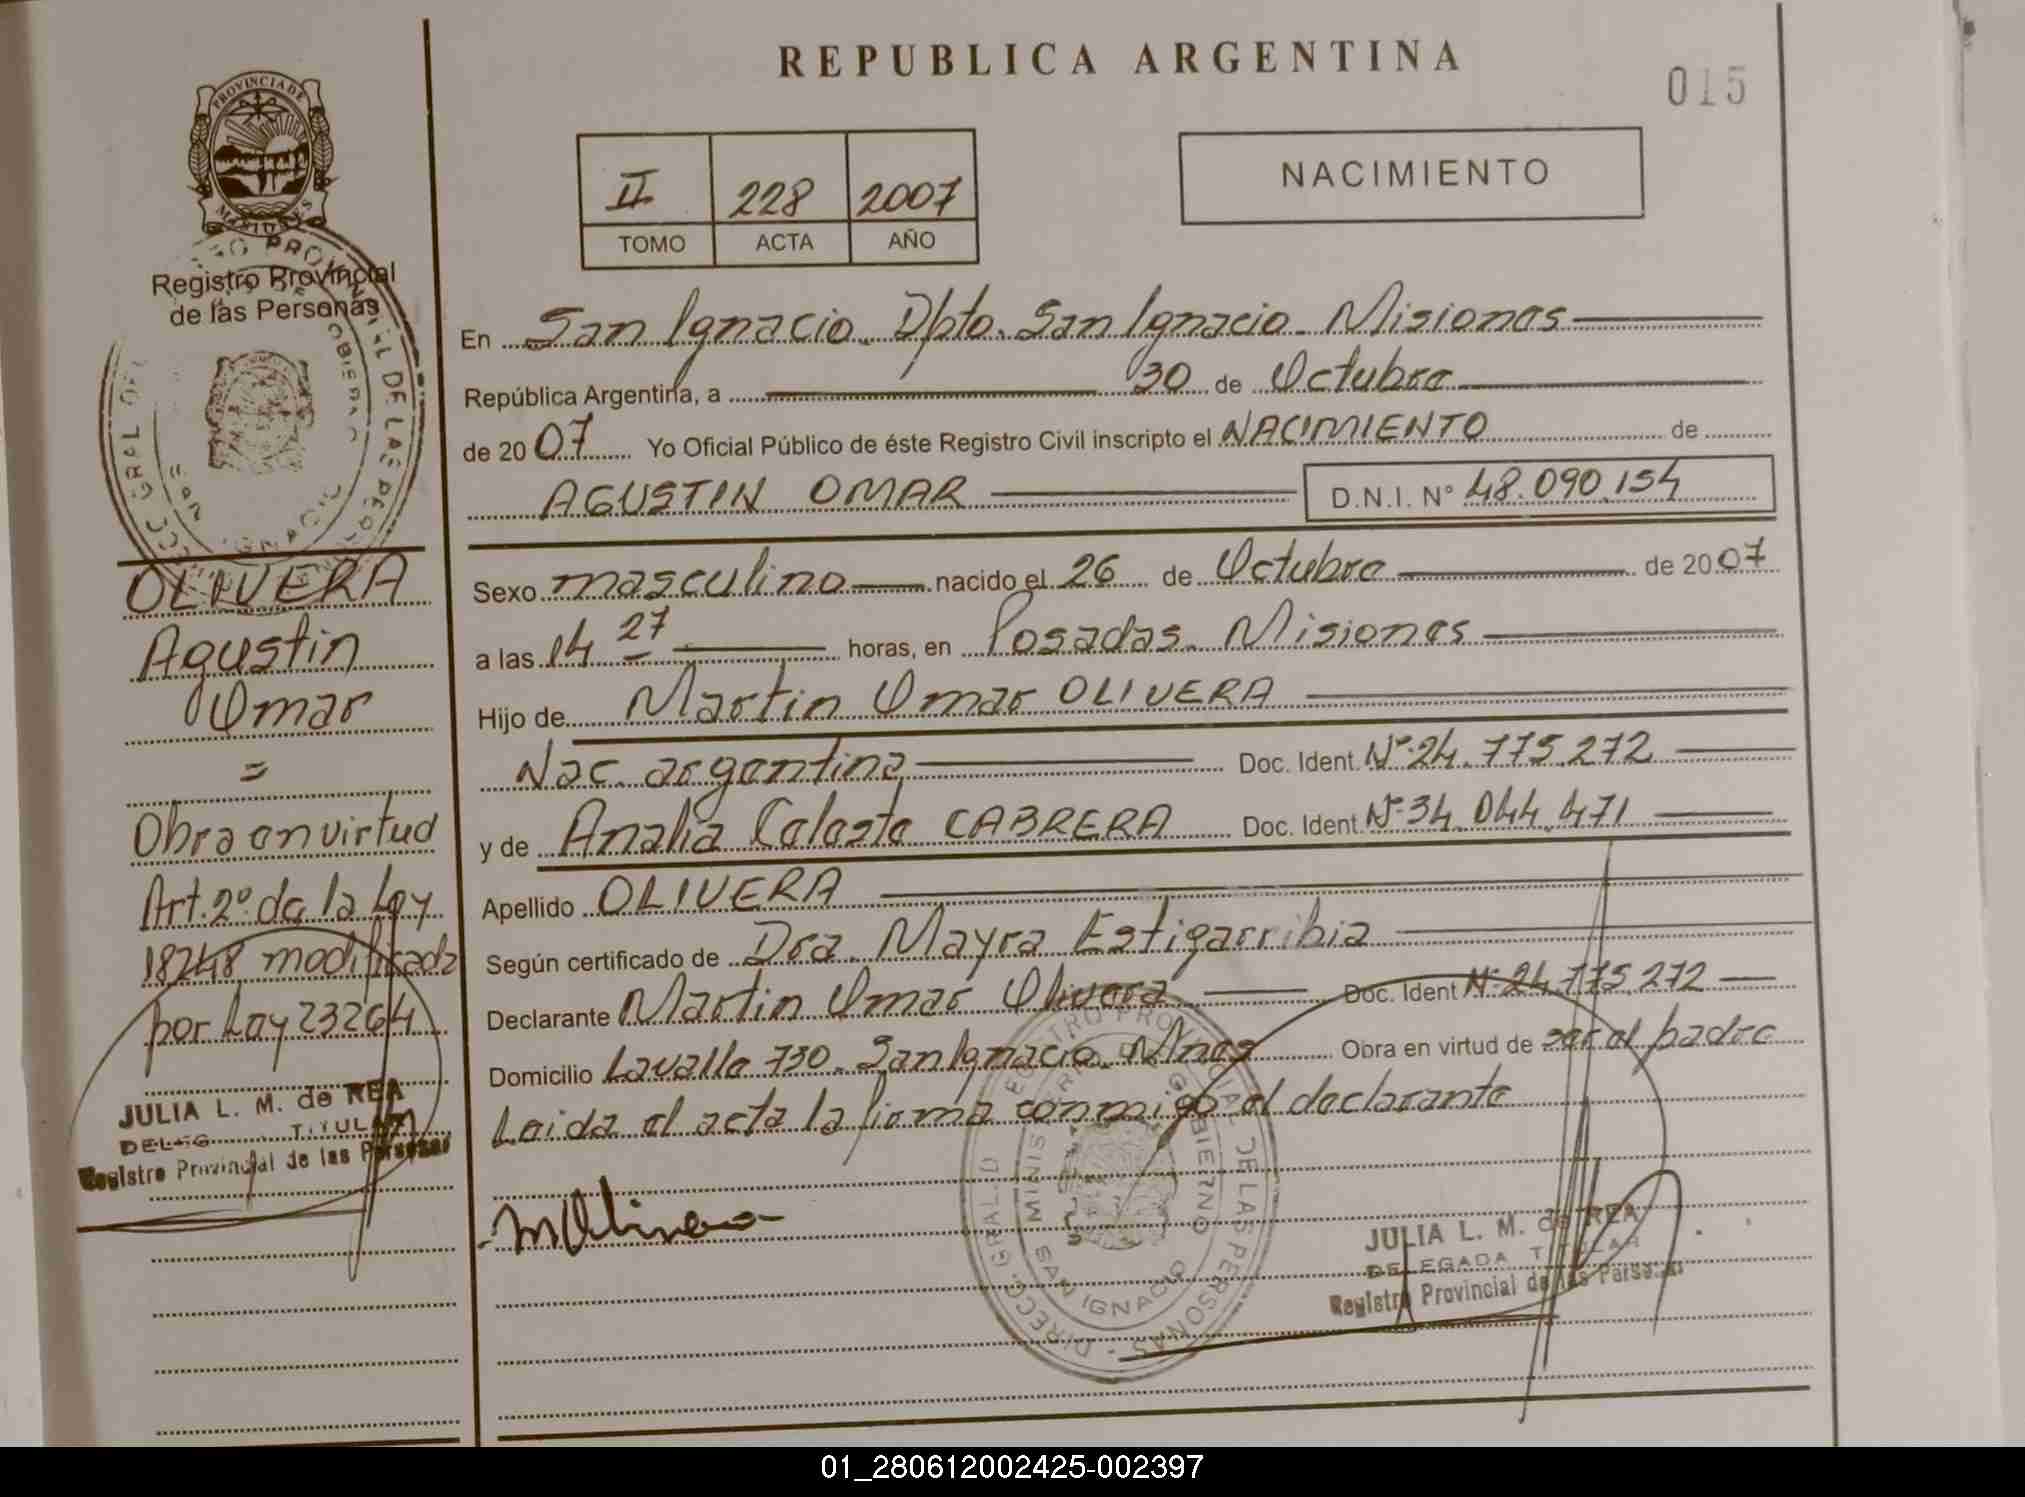 REPUBLICA ARGENTINA
015
PROVINCIA DE
MISIONES
II 228 2007
TOMO ACTA AÑO
NACIMIENTO
Registro Provincial
de las Personas
En San Ignacio. Dpto. San Ignacio. Misiones
República Argentina, a 30 de Octubre
de 2007 Yo Oficial Público de éste Registro Civil inscripto el NACIMIENTO de
AGUSTIN OMAR D.N.I. N° 48.090.154
Sexo masculino nacido el 26 de Octubre de 2007
a las 14 27 horas, en Posadas. Misiones
Hijo de Martin Omar OLIVERA
Nac. argentina Doc. Ident. Nº 24.775.272
y de Analia Celeste CABRERA Doc. Ident. Nº 34.044.471
Apellido OLIVERA
Según certificado de Dra. Mayra Estigarribia
Declarante Martin Omar Olivera Doc. Ident Nº 24.775.272
Domicilio Lavalle 730. San Ignacio. Mnes Obra en virtud de ser el padre
Leida el acta la firma conmigo el declarante
MOlivera
REGISTRO PROVINCIAL DE LAS PERSONAS - DIRECC. GRAL. D
GOBIERNO
SAN IGNACIO
JULIA L. M. de REA
DELEGADA TITULAR
Registro Provincial de las Personas
OLIVERA
Agustin
Omar
=
Obra en virtud
Art. 2º de la Ley
18248 modificada
por Ley 23264
JULIA L. M. de REA
DELEG TITULAR
Registro Provincial de las Personas
01_280612002425-002397